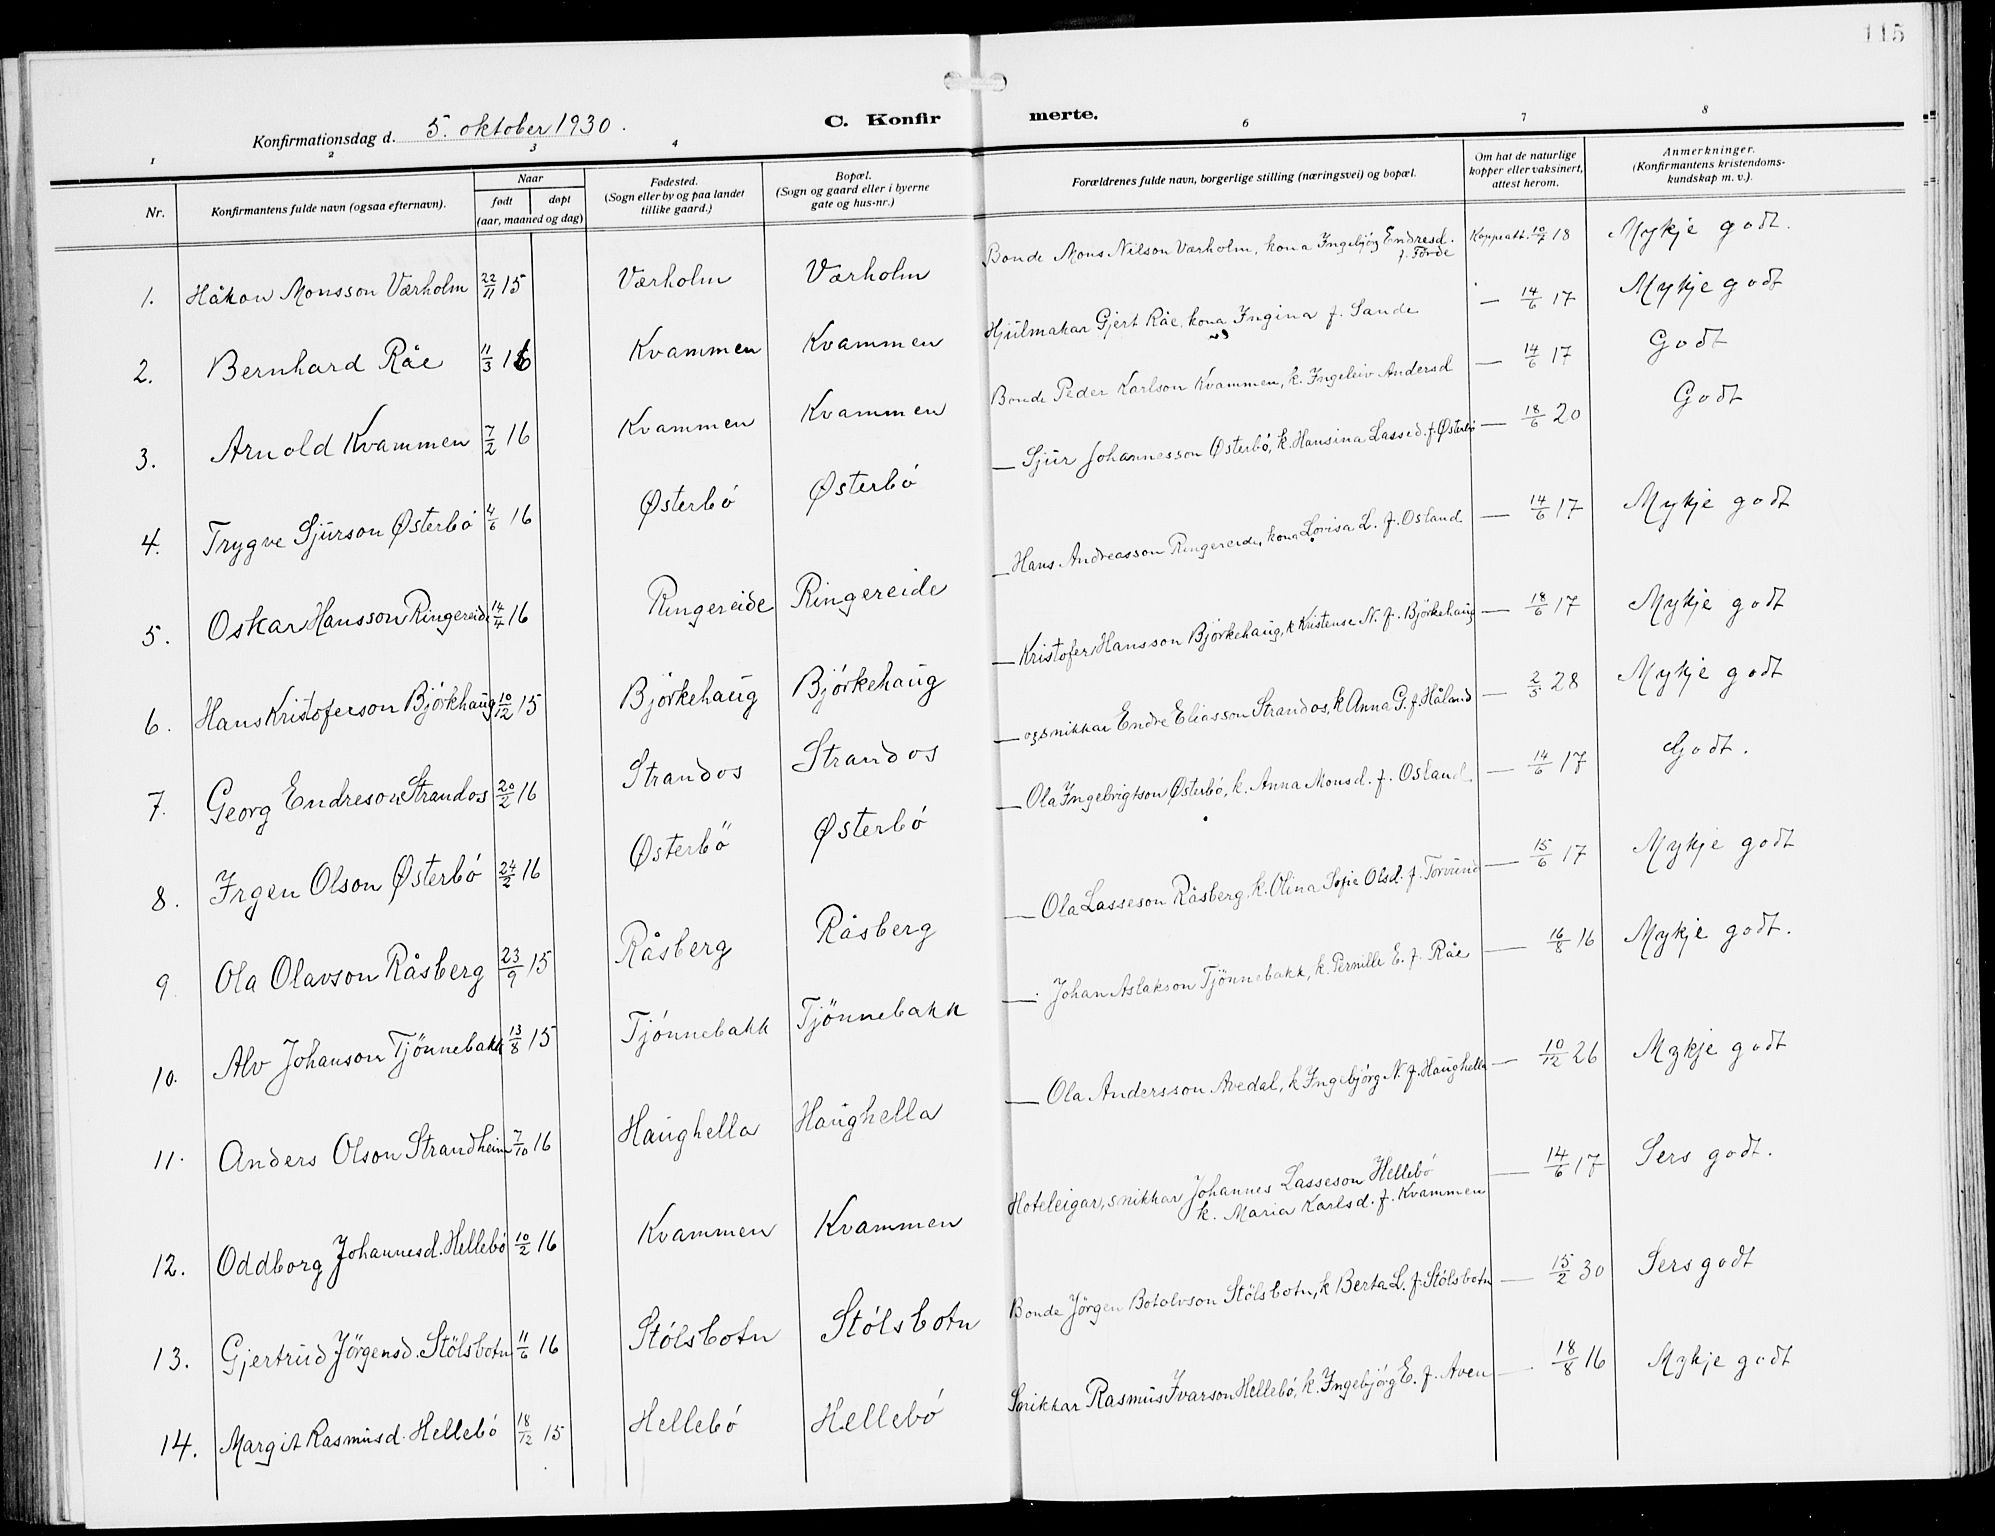 115
Konfirmationsdag d. 5. oktober 1930.
C. Konfirmerte.
1 2 3 4 6 7 8
Nr.
Konfirmantens fulde navn (ogsaa efternavn).
Naar
født døpt
(aar, maaned og dag)
Fødested.
(Sogn eller by og paa landet
tillike gaard.)
Bopæl.
(Sogn og gaard eller i byerne
gate og hus-nr.)
Forældrenes fulde navn, borgerlige stilling (næringsvei) og bopæl.
Om hat de naturlige
kopper eller vaksinert,
attest herom.
Anmerkninger.
(Konfirmantens kristendoms-
kundskap m. v.).
1. Håkon Monsson Værholm 22/11 15 Værholm Værholm Bonde Mons Nilson Værholm, kona Ingebjörg Endresd. f. Förde Koppeatt. 10/7 18 Mykje godt.
2. Bernhard Råe 11/3 16 Kvammen Kvammen Hjulmakar Gjert Råe, kona Ingina f. Sande — 14/6 17 Mykje godt
3. Arnold Kvammen 7/2 16 Kvammen Kvammen Bonde Peder Karlson Kvammen, k. Ingeleiv Andersd — 14/6 17 Godt
4. Trygve Sjurson Østerbó 4/6 16 Østerbó Østerbó — Sjur Johannesson Østerbó, k. Hansina Lassed. f. Østerbó — 18/6 20 Godt
5. Oskar Hansson Ringereide 14/4 16 Ringereide Ringereide — Hans Andreasson Ringereide, kona Lovisa L. f. Osland — 14/6 17 Mykje godt
6. Hans Kristoferson Björkhaug 10/12 15 Björkehaug Björkehaug — Kristofer Hansson Björkehaug, k Kristense N. f. Björkehaug — 18/6 17 Mykje godt
7. Georg Endreson Strandos 20/2 16 Strandos Strandos — og snikkar Endre Eliasson Strandos, k Anna G. f. Håland — 2/5 28 Mykje godt
8. Irgen Olson Østerbó 24/2 16 Østerbö Østerbó — Ola Ingebrigtson Østerbó, k. Anna Monsd. f. Osland — 14/6 17 Godt.
9. Ola Olavson Råsberg 23/9 15 Råsberg Råsberg — Ola Lasseson Råsberg, k. Olina Sofie Olsd. f. Torvund — 15/6 17 Mykje godt
10. Alv Johanson Tjönnebakk 13/8 15 Tjónnebakk Tjönnebakk — Johan Aslakson Tjönnebakk, k. Pernille E. f. Råe — 16/8 16 Mykje godt.
11. Anders Olson Strandheim 7/10 16 Haughella Haughella — Ola Andersson Avedal, k Ingebjörg N. f. Haughella — 10/12 26 Mykje godt
12. Oddborg Johannesd. Hellebó 10/2 16 Kvammen Kvammen Hoteleigar, snikkar Johannes Lasseson Hellebó
k. Maria Karlsd. f. Kvammen — 14/6 17 Sers godt.
13. Gjertrud Jörgensd. Stölsbotn 11/6 16 Stólsbotn Stólsbotn Bonde Jörgen Botolvson Stölsbotn, k Berta L. f. Stólsbotn — 15/2 30 Sers godt
14. Margit Rasmusd. Hellebó 18/12 15 Hellebó Hellebó Snikkar Rasmus Ivarson Hellebó, k. Ingebjörg E. f. Aven — 18/8 16 Mykje godt